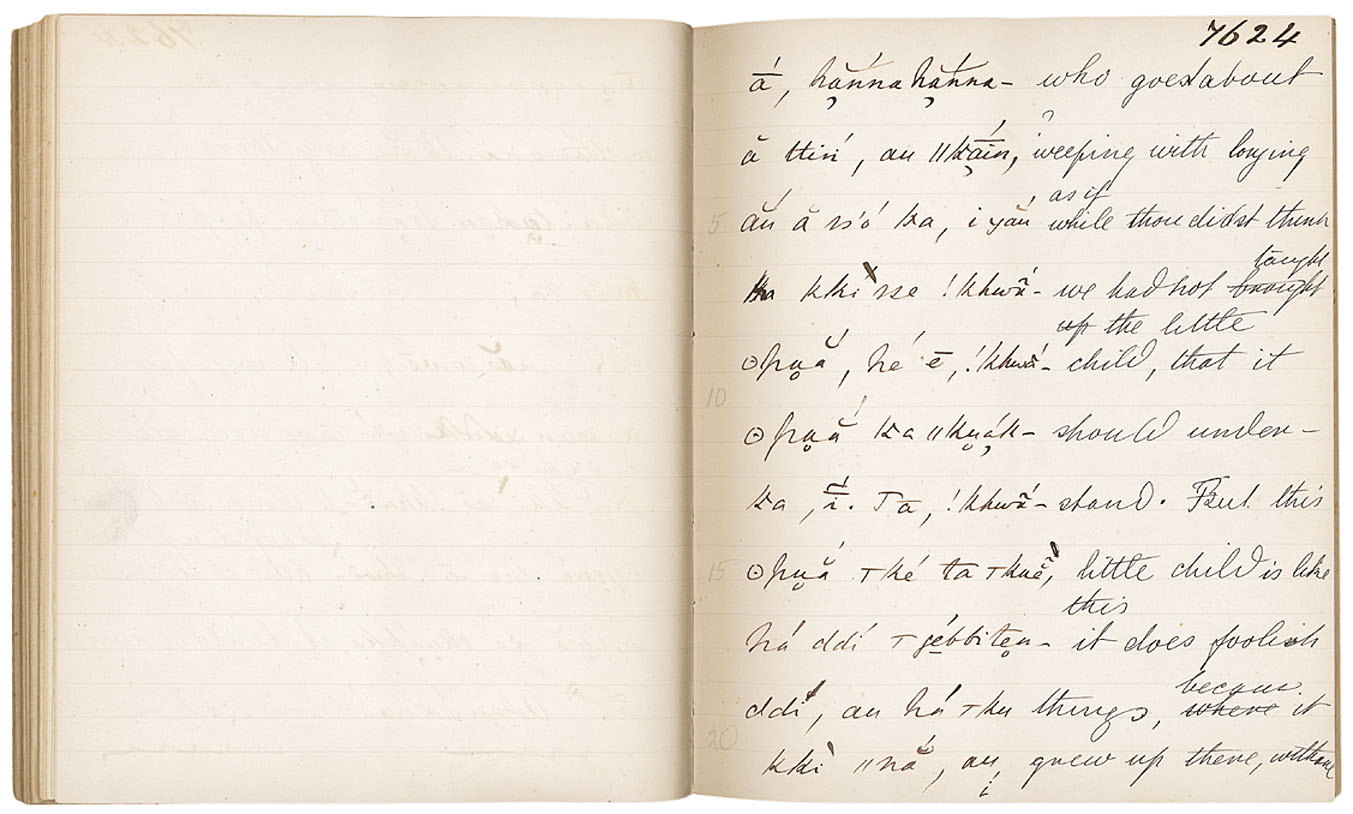 7624
á, hắnna hắnna- who goest about
ă ttin, au ǁkāín, weeping with longing
as if
5 ắu ă ss'o ka, i yáu while thou didst think
taught
kki sse !khwā- we had not brought
up the little
ʘpuá, hé ē, !khwā- child, that it
10
ʘpuắ ka ǁkuák- should under-
ka, ī. Ta, !khwā- stand. But this
15 ʘpuắ ⊤ké ta ⊤kuĕ, little child is like
this
há ddí ⊤gébbiten- it does foolish
because
ddí, au há ⊤ku things, where it
20
kki ǁnă, au grew up there, without
i